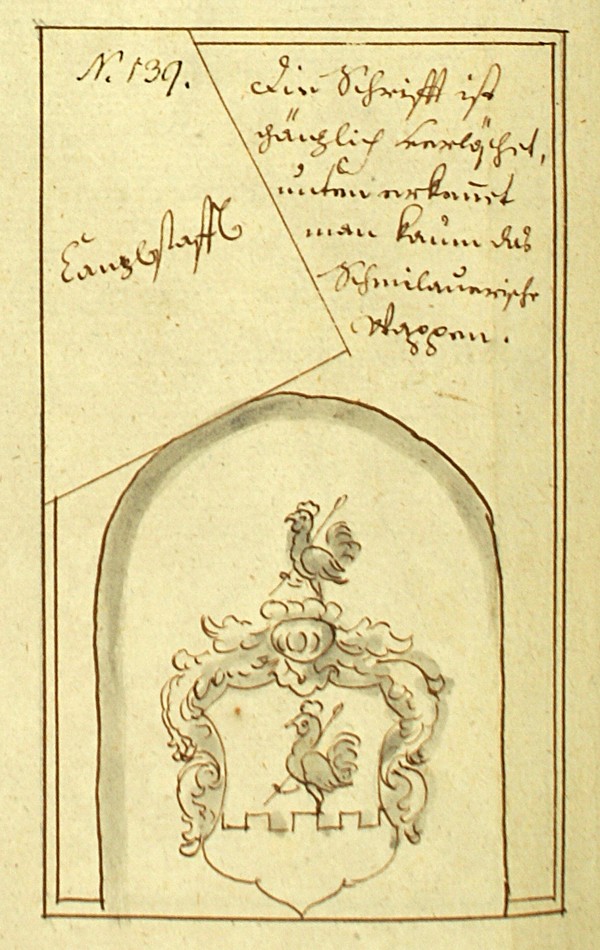 N. 139.
Canzlstaffl
Die Schrifft ist
gänzlich verlöschet,
unten erkeñet
man kaum das
Schmilauerische
Wappen.